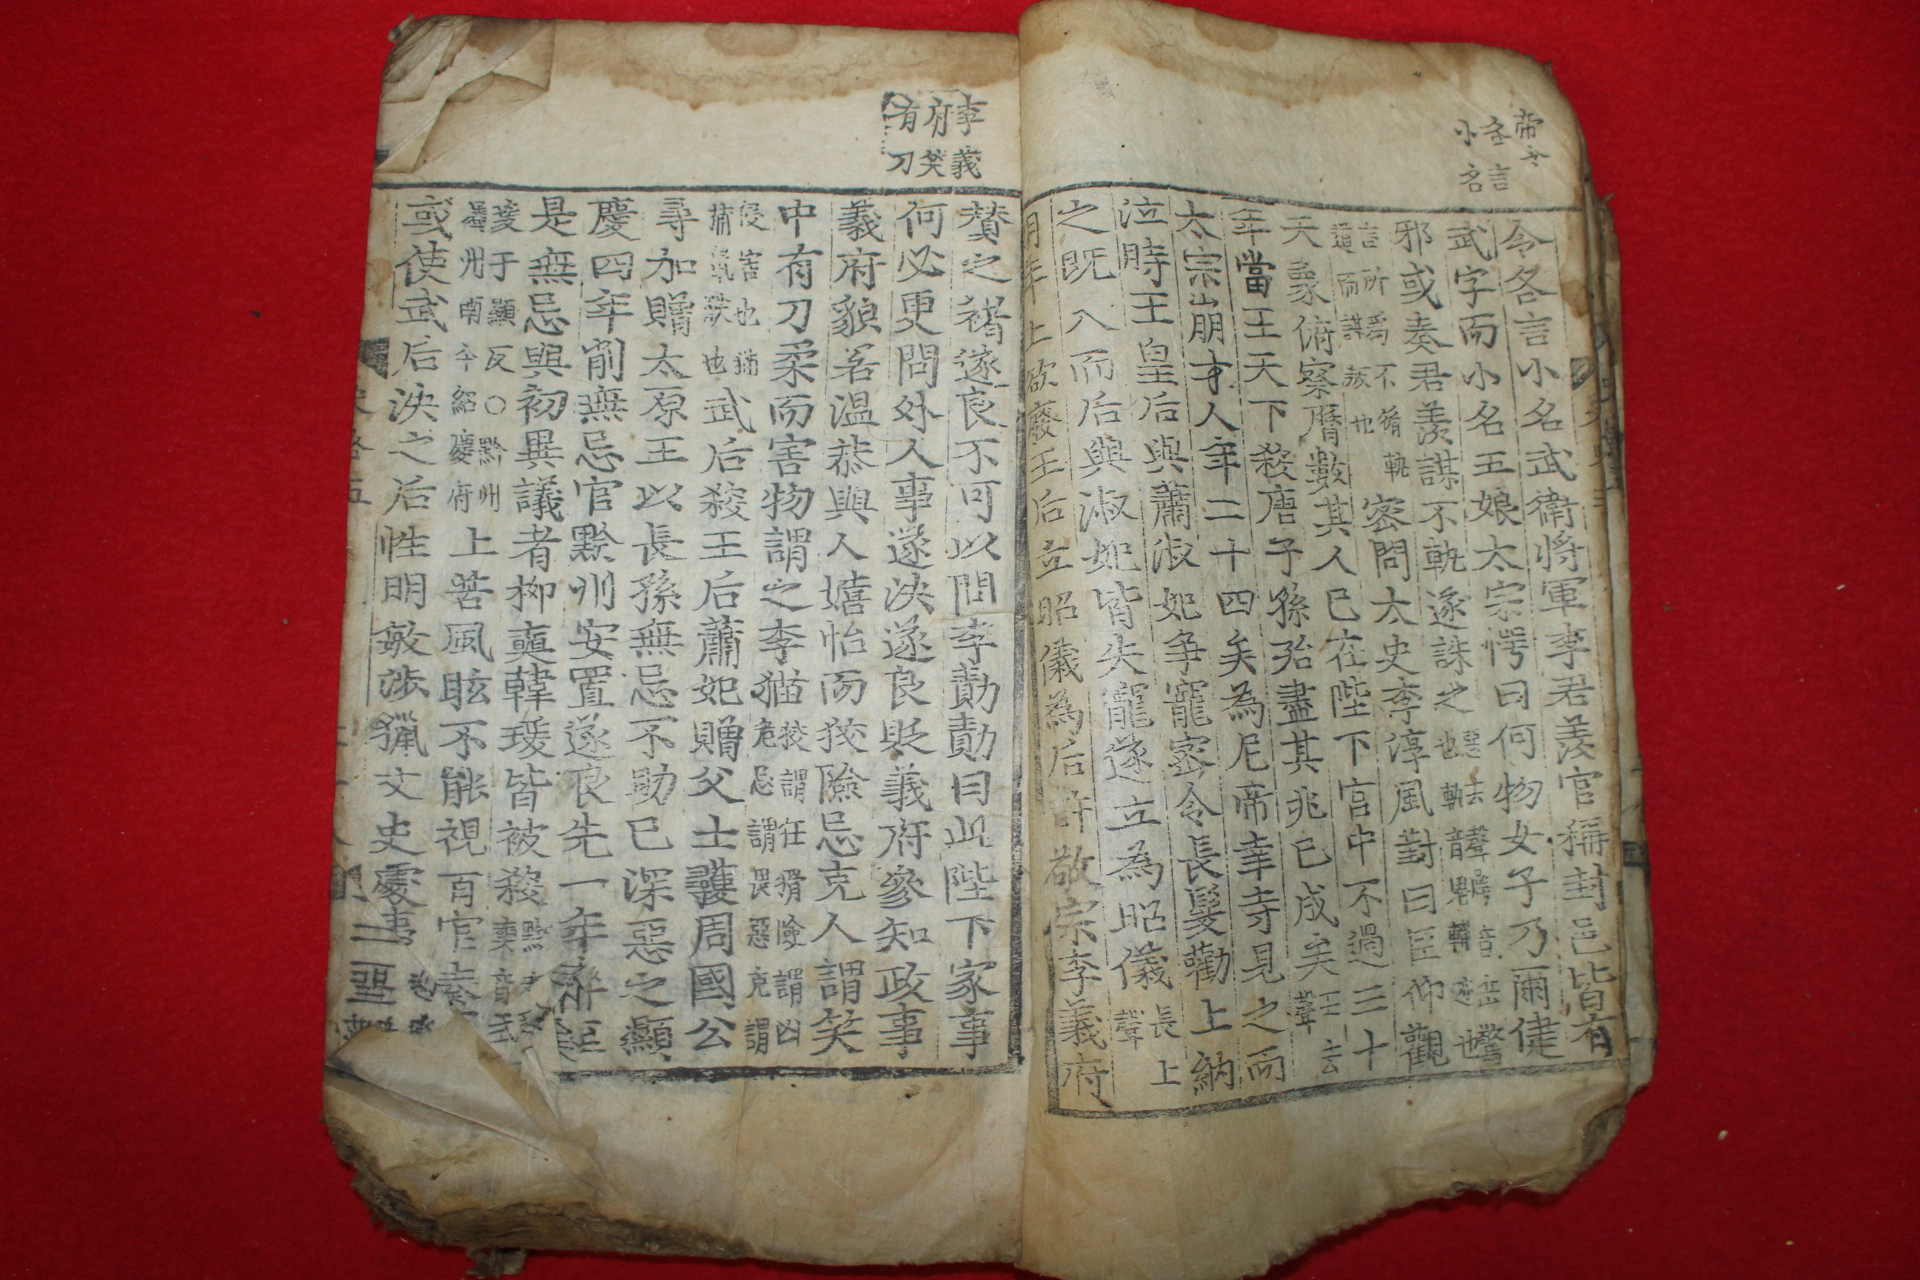 帝令
各言
小名
令各言小名武衛將軍李君羨官稱封邑皆有
武字而小名五娘太宗愕曰何物女子乃爾健
邪或奏君羨謀不軌遂誅之惡去聲愕音咢驚也軌音鬼轍迹也
言所爲不循軌道而謀叛也密問太史李淳風對曰臣仰觀
天象俯察曆數其人已在陛下宮中不過三十
年當王天下殺唐子孫殆盡其兆已成矣王去聲
太宗崩才人年二十四矣為尼帝幸寺見之而
泣時王皇后與蕭淑妃爭寵密令長髮勸上納
之既入而后與淑妃皆失寵遂立為昭儀長上聲
明年上欲廢王后立昭儀為后許敬宗李義府
李義
府笑
有刀
贊之褚遂良不可以問李勣勣曰此陛下家事
何必更問外人事遂決遂良貶義府參知政事
義府貌若溫恭與人嬉怡而狡險忌克人謂笑
中有刀柔而害物謂之李猫狡謂狂猾險謂凶危忌謂畏惡克謂
侵害也猫捕鼠獸也武后殺王后蕭妃贈父士彠周國公
尋加贈太原王以長孫無忌不助已深惡之顯
慶四年削無忌官黔州安置遂良先一年卒至
是無忌與初異議者柳奭韓瑗皆被殺黔奭音
于顯反○黔州州南今紹慶府上苦風眩不能視百官奏
或使武后決之后性明敏涉獵文史處事